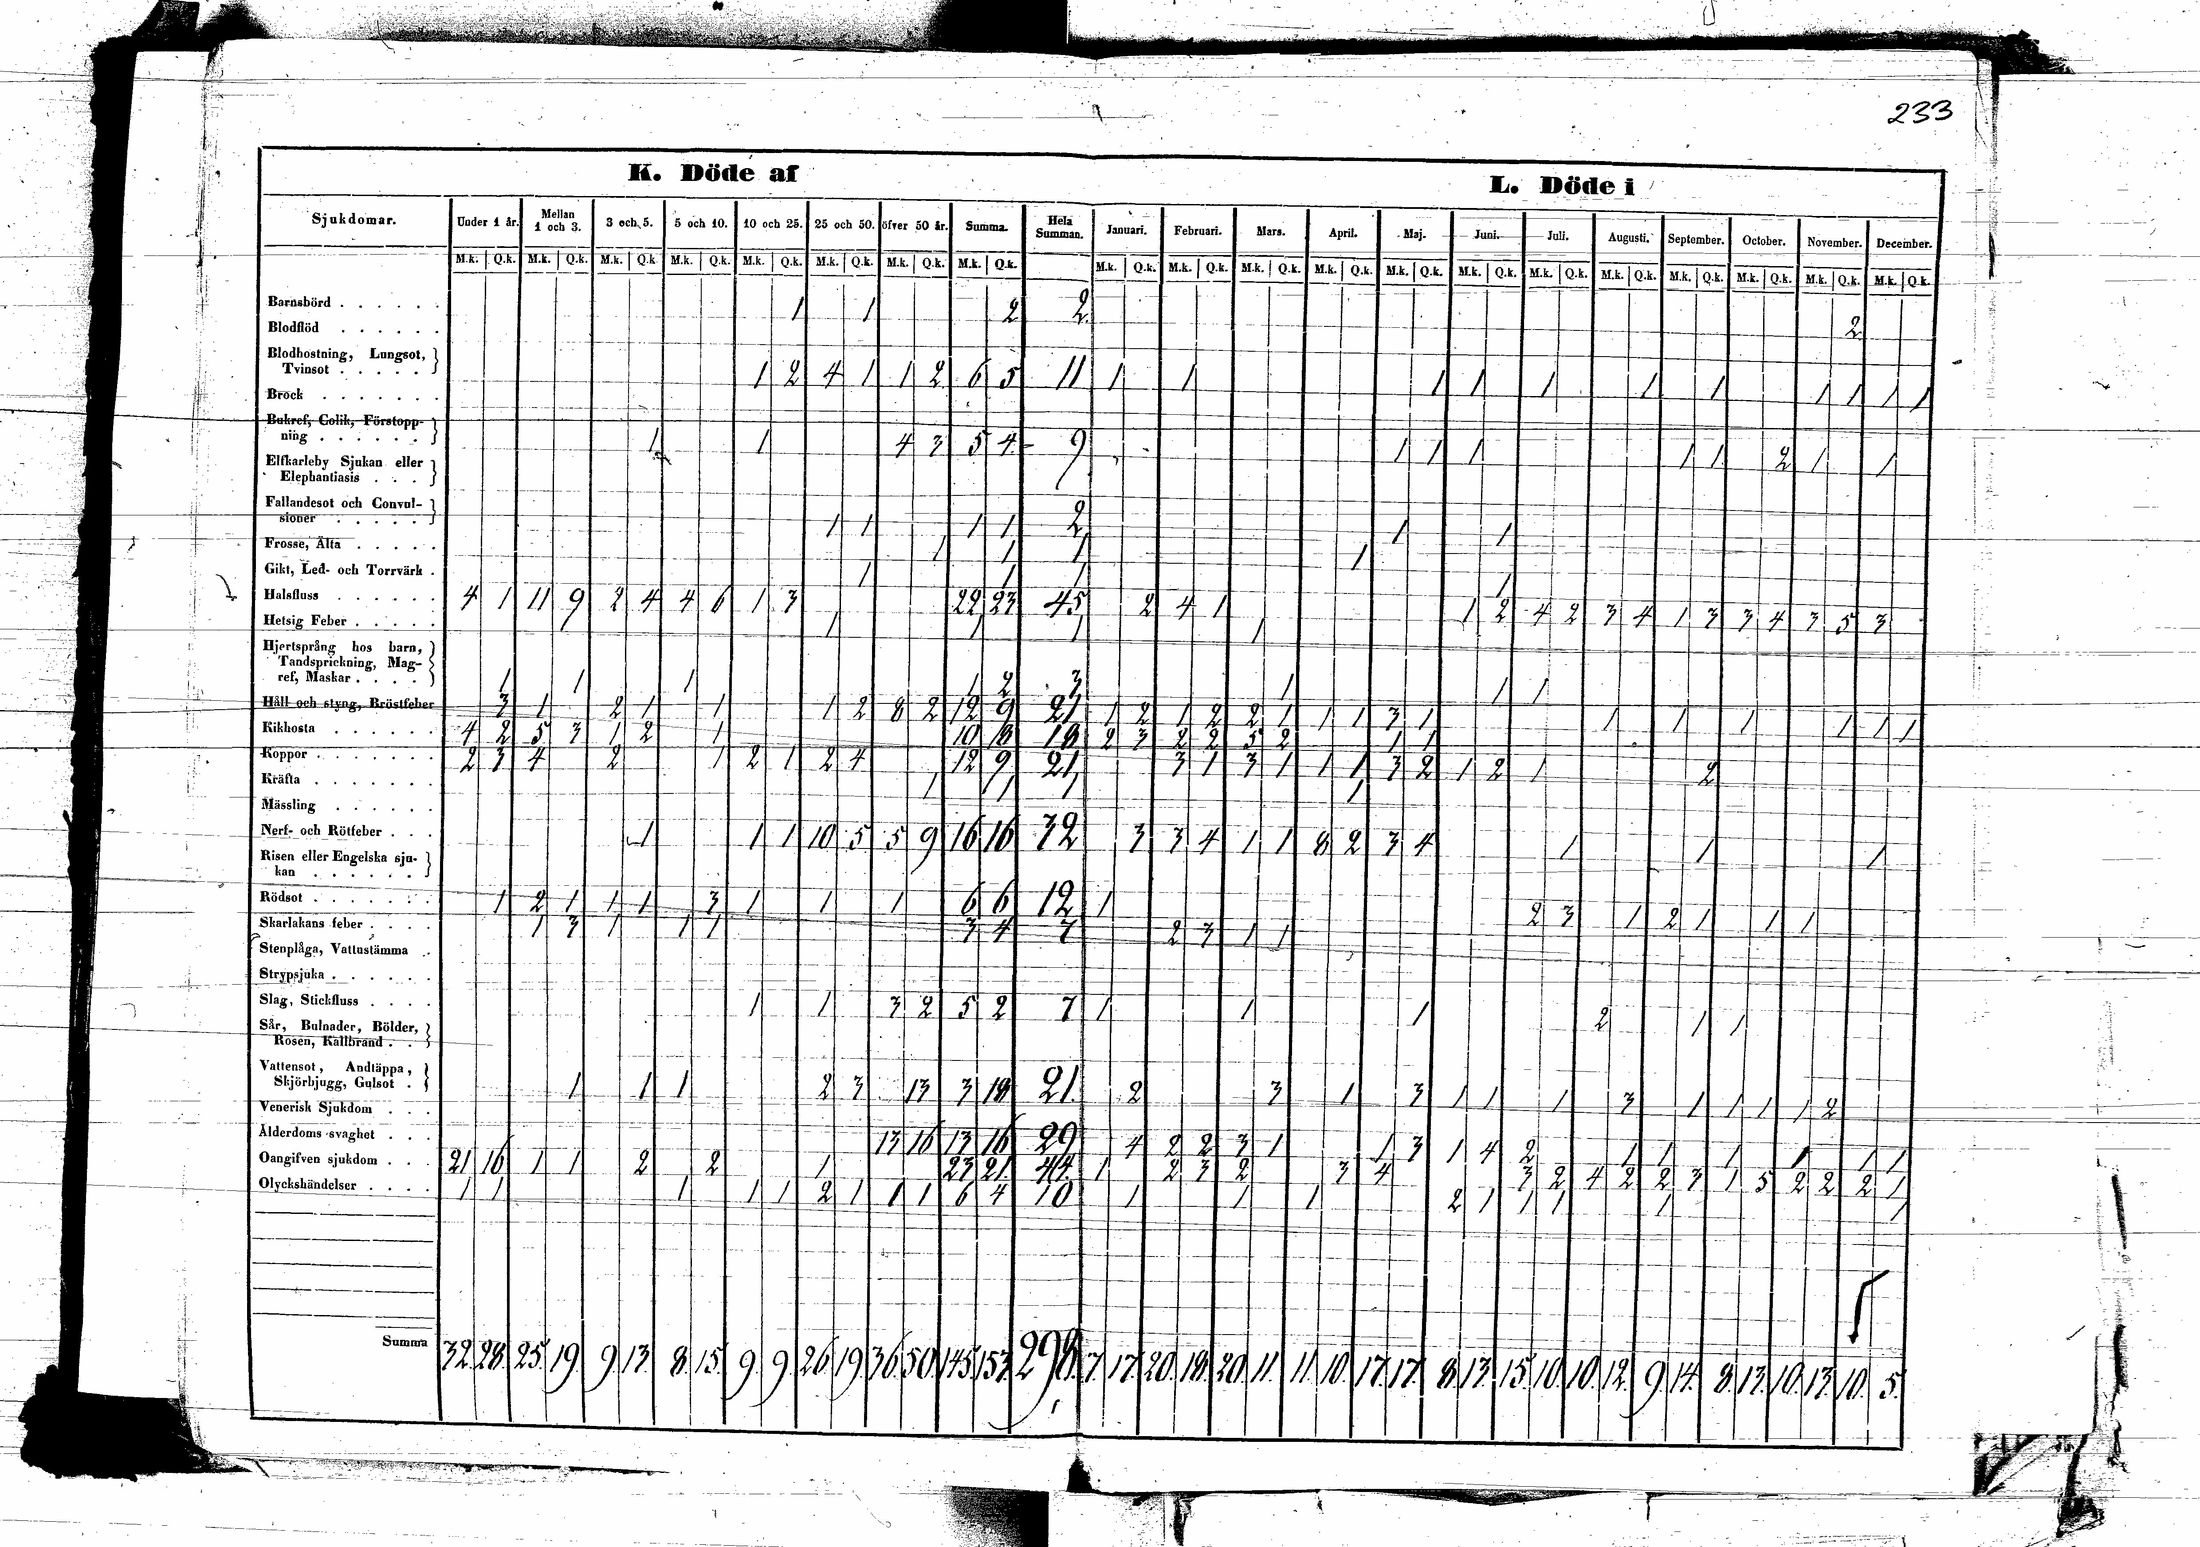 233
K. Döde af
L. Döde i
Sjukdomar. Under 1 år. Mellan 1 och 3. 3 och 5. 5 och 10. 10 och 25. 25 och 50. öfver 50 år. Summa. Hela Summan. Januari. Februari. Mars. April. Maj. Juni. Juli. Augusti. September. October. November. December.
M.k. Q.k. M.k. Q.k. M.k. Q.k M.k. Q.k. M.k. Q.k. M.k. Q.k. M.k. Q.k. M.k. Q.k. M.k. Q.k. M.k. Q.k. M.k. Q.k. M.k. Q.k. M.k. Q.k. M.k. Q.k. M.k. Q.k. M.k. Q.k. M.k. Q.k. M.k. Q.k. M.k. Q.k. M.k. Q.k.
Barnsbörd . . . . . . 1 1 2 2 2
Blodflöd . . . . . .
Blodhostning, Lungsot,
Tvinsot . . . . . 1 2 4 1 1 2 6 5 11 1 1 1 1 1 1 1 1 1 1 1
Brock . . . . . . .
Bukref, Colik, Förstopp-
ning . . . . . . 1 1 4 3 5 4 9 1 1 1 1 1 2 1 1
Elfkarleby Sjukan eller
Elephantiasis . . .
Fallandesot och Convul-
sioner . . . . . 1 1 1 1 2 1 1
Frosse, Älta . . . . . 1 1 1 1
Gikt, Led- och Torrvärk . 1 1 1 1
Halsfluss . . . . . . 4 1 11 9 2 4 4 6 1 3 22 23 45 2 4 1 1 2 4 2 3 4 1 3 3 4 3 5 3
Hetsig Feber . . . . . 1 1 1 1
Hjertsprång hos barn,
Tandsprickning, Mag-
ref, Maskar . . . . 1 1 1 1 2 3 1 1 1
Håll och styng, Bröstfeber 3 1 2 1 1 1 2 8 2 12 9 21 1 2 1 2 2 1 1 1 3 1 1 1 1 1 1 1
Kikhosta . . . . . . 4 2 5 3 1 2 1 10 8 18 2 3 2 2 5 2 1 1
Koppor . . . . . . . 2 3 4 2 1 2 1 2 4 12 9 21 3 1 3 1 1 1 3 2 1 2 1 2
Kräfta . . . . . . . 1 1 1 1
Mässling . . . . . .
Nerf- och Rötfeber . . . 1 1 1 10 5 5 9 16 16 32 3 3 4 1 1 8 2 3 4 1 1 1
Risen eller Engelska sju-
kan . . . . . .
Rödsot . . . . . . . 1 2 1 1 1 3 1 1 1 6 6 12 1 2 3 1 2 1 1 1
Skarlakans feber . . . . 1 3 1 1 1 3 4 7 2 3 1 1
Stenplåga, Vattustämma . .
Strypsjuka . . . . . .
Slag, Stickfluss . . . . 1 1 3 2 5 2 7 1 1 1 2 1 1
Sår, Bulnader, Bölder,
Rosen, Kallbrand . .
Vattensot, Andtäppa,
Skjörbjugg, Gulsot . 1 1 1 2 3 13 3 18 21 2 3 1 3 1 1 1 3 1 1 1 1 2
Venerisk Sjukdom . . .
Ålderdoms svaghet . . . 13 16 13 16 29 4 2 2 3 1 1 3 1 4 2 1 1 1 1 1 1
Oangifven sjukdom . . . 21 16 1 1 2 2 1 23 21 44 1 2 3 2 3 4 3 2 4 2 2 3 1 5 2 2 2 1
Olyckshändelser . . . . 1 1 1 1 1 2 1 1 1 6 4 10 1 1 1 2 1 1 1 1 1
Summa 32. 28. 25. 19. 9. 13. 8. 15. 9. 9. 26. 19. 36. 50. 145. 153. 298. 7. 17. 20. 18. 20. 11. 11. 10. 17. 17. 8. 13. 15. 10. 10. 12. 9. 14. 8. 13. 10. 13. 10. 5.